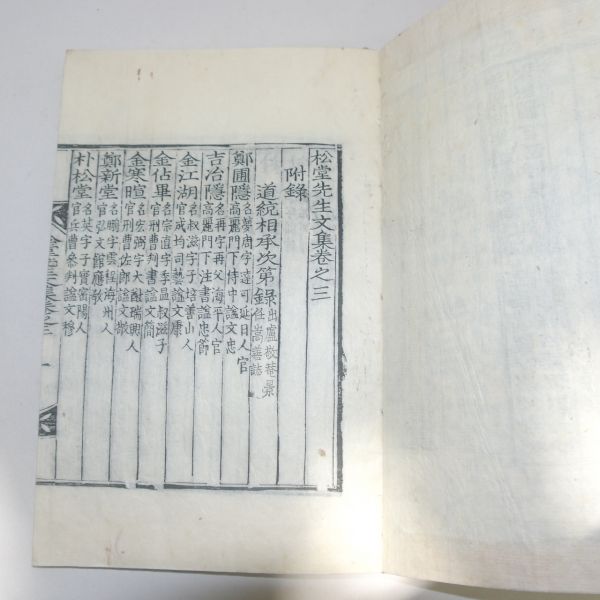 松堂先生文集卷之三
附錄
道統相承次第錄出盧敬菴景任嵩善誌
鄭圃隱名夢周字達可延日人官高麗門下侍中諡文忠
吉冶隱名再字再父海平人官高麗門下注書諡忠節
金江湖名叔滋字子培善山人官成均司藝諡文康
金佔畢名宗直字季昷叔滋子官刑曹判書諡文簡
金寒暄名宏弼字大猷瑞興人官刑曹佐郎諡文敬
鄭新堂名鵬字雲程海州人官弘文館應敎
朴松堂名英字子實密陽人官兵曹參判諡文穆